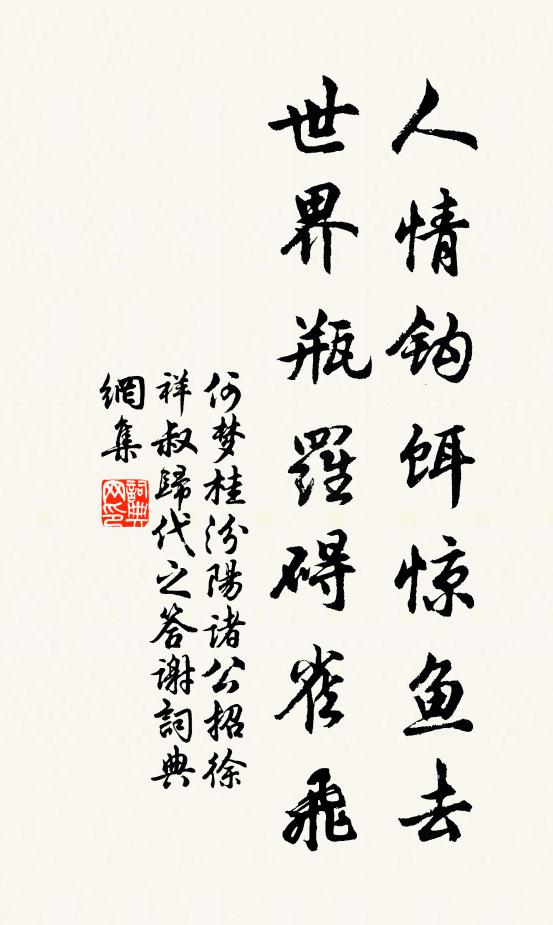 人情钩饵惊鱼去
世界瓶羅碍雀飛
何梦桂汾陽诸公招徐
祥叔歸代之答谢詞典
網集
詞典网印